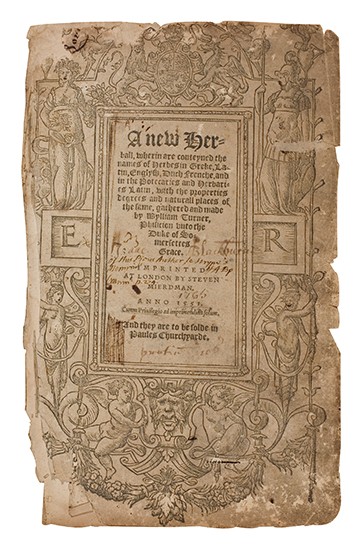 A new Her-
ball, wherin are conteyned the
names of Herbes in Greke, La-
tin, Englysh, Duch Frenche, and
in the Potecaries and Herbaries
Latin, with the properties
degrees and naturall places of
the same, gathered and made
by Wylliam Turner,
Phisicion vnto the
Duke of So-
mersettes
Grace.
E R
IMPRINTED
AT LONDON BY STEVEN
MIERDMAN.
1765
ANNO 1551.
Cum Priuilegio ad imprimendum solum.
And they are to be solde in
Paules Churchyarde.